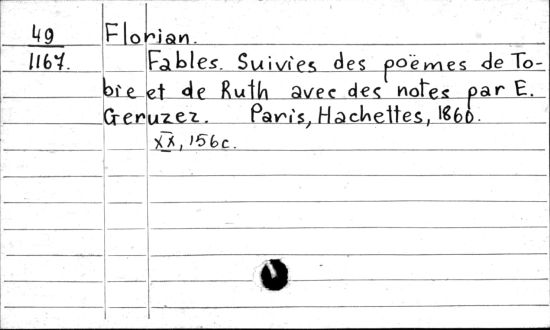 49 Florian.
1167. Fables. Suivies des poëmes de To-
bie et de Ruth avec des notes par E.
Geruzez. Paris, Hachettes, 1860.
XX, 156c.